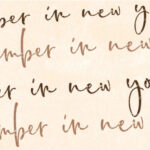 ber in new yo
ember in new
er in new yo
mber in new